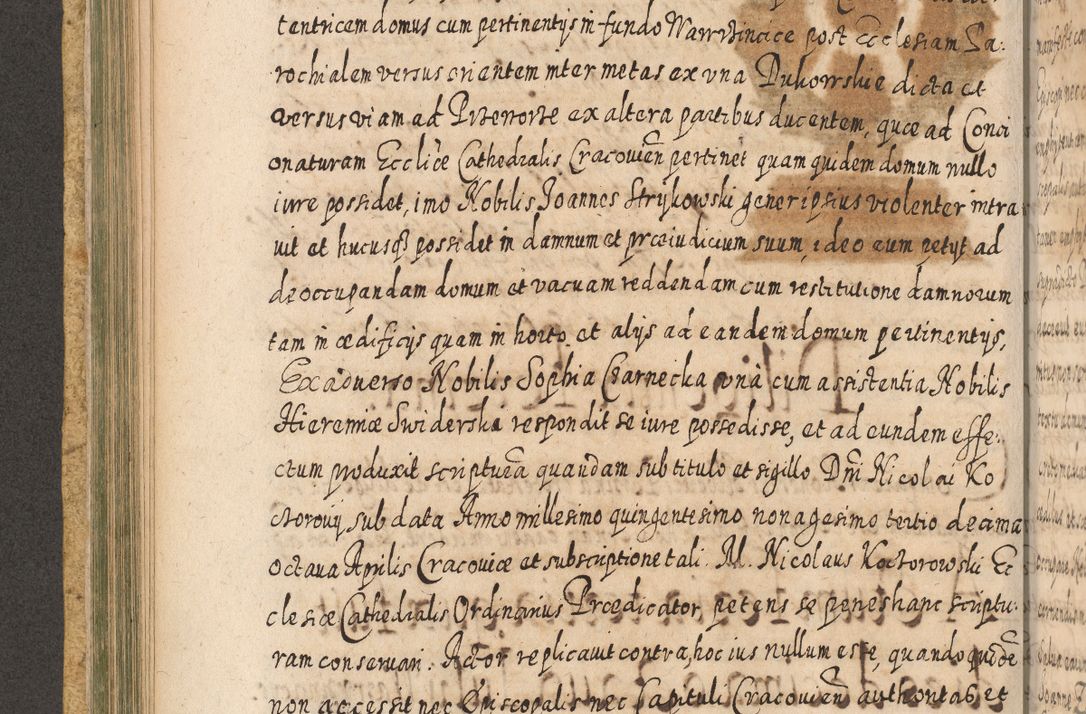 tentricem domus cum pertinentijs in fundo Wawrzincice post Ecclesiam Pa-
rochialem versus orientem inter metas ex vna Dukowskie dicta et
versus viam ad Przenorze ex altera partibus ducentem, quæ ad Conci
onaturam Ecclicæ Cathedralis Cracouien pertinet quam quidem domum nullo
iure possidet, imo Nobilis Joannes Strijkowski gener ipsius violenter intra
uit et hucusq3 possidet in damnum et præiudicium suum, ideo eum petijt ad
deoccupandam domum et vacuam reddendam cum restitutione damnorum
tam in ædificijs quam in horto et alijs ad eandem domum pertinentijs,
Ex aduerso Nobilis Sophia Czarnecka vnà cum assistentia Nobilis
Hieremiæ Swiderski respondit se iure possedisse, et ad eundem effe-
ctum produxit scripturã quandam sub titulo et sigillo Dñi Nicolai Ko
ctorouij sub data Anno millesimo quingentesimo nonagesimo tertio decima
octaua Aprilis Cracouiæ et subscriptione tali. M. Nicolaus Koctorowski Ec
clesiæ Cathedralis Ordinarius Prædicator, petens se penes hanc scriptu-
ram conseruari. Actor replicauit contra, hoc ius nullum esse, quando quidẽ
non accessit nec Episcopalis nec Capituli Cracouien authoritas et